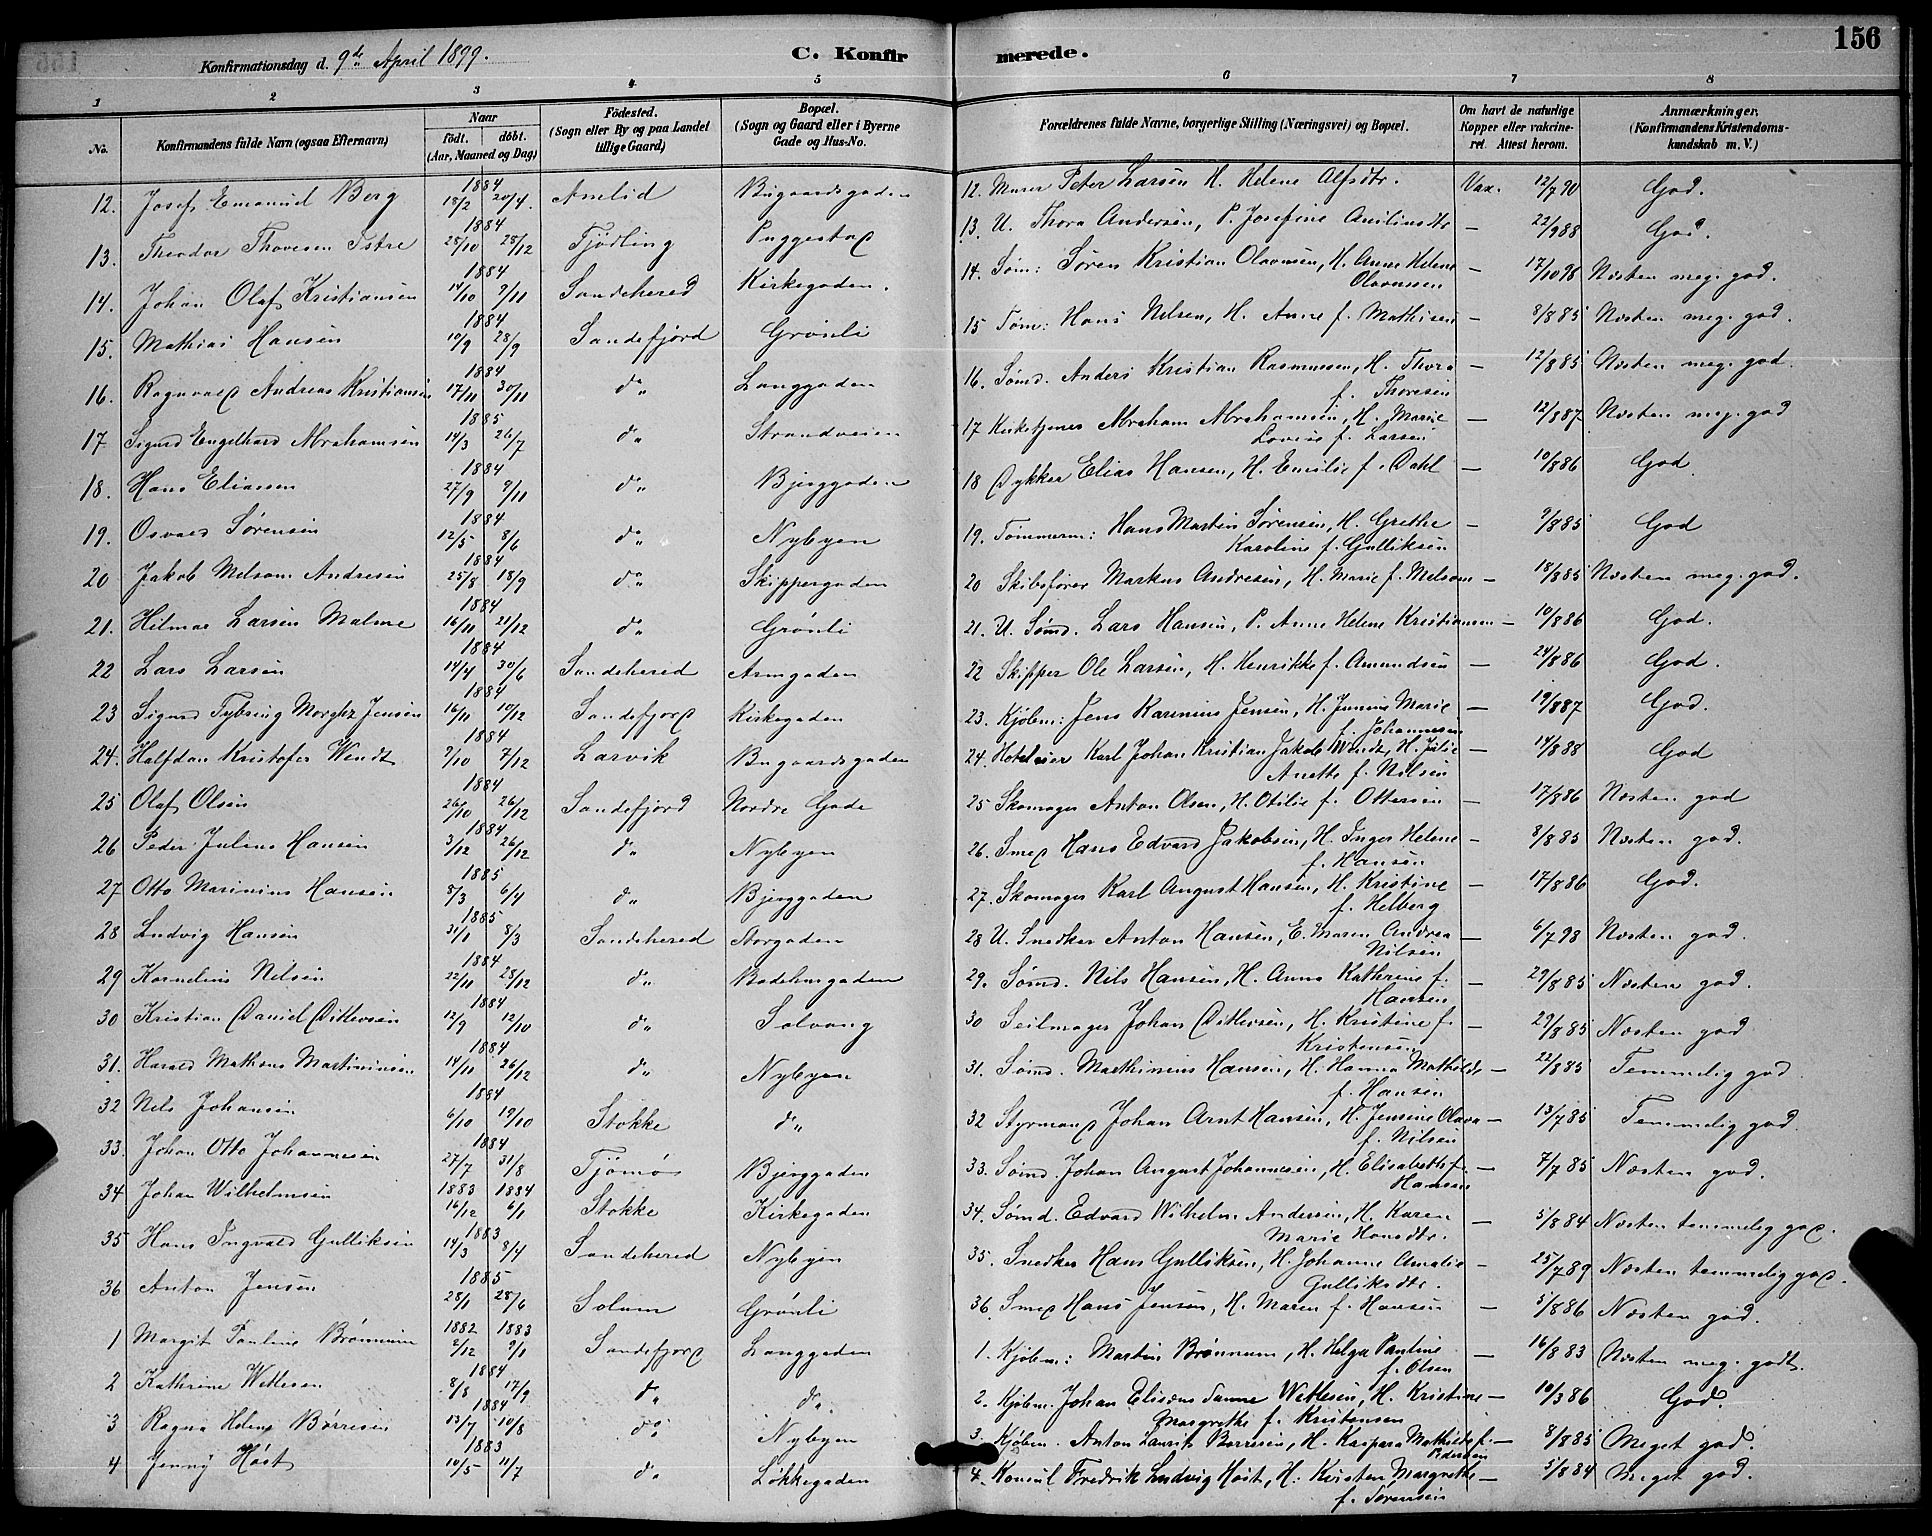 Konfirmationsdag d. 9de April 1899. C. Konfir merede. 156
1 2 3 4 5 6 7 8
No. Konfirmandens fulde Navn (ogsaa Efternavn) Naar født. døbt. (Aar, Maaned og Dag) Fødested. (Sogn eller By og paa Landet tillige Gaard) Bopæl. (Sogn og Gaard eller i Byerne Gade og Hus-No. Forældrenes fulde Navne, borgerlige Stilling (Næringsvei) og Bopæl. Om havt de naturlige Kopper eller vakcineret. Attest herom. Anmærkninger. (Konfirmandens Kristendomskundskab m. V.)
12. Josef Emanuel Berg 1884 18/2 20/4. Amlid Bugaardsgaden 12. Murer Peter Larsen H. Helene Alfsdtr. Vax. 12/7 90 God.
13. Theodor Thovesen Istre 1884 28/10 28/12 Tjødling Puggestad 13. U. Thora Andersen, P. Josefine — 22/9 88 God.
14. Johan Olaf Kristiansen 1884 14/10 9/11 Sandehered Kirkegaden. 14. Søm: Søren Kristian Olavesen, H. Anne Helene Olavesen — 17/10 98 Næsten meg. god.
15. Mathias Hansen 1884 10/9 28/9 Sandefjord Grønli 15 Tøm: Hans Nilsen, H. Anne f. Mathisen — 8/8 85 Næsten meg. god.
16. Ragnvald Andreas Kristiansen 1884 17/11 30/11 do Langgaden 16. Sømd. Anders Kristian Rasmussen, H. Thora f. Thoresen — 12/8 85 Næsten meg. god
17. Sigurd Engelhard Abrahamsen 1885 14/3 26/7 do Strandveien 17 Kirketjener Abraham Abrahamsen, H. Marie Lovise f. Larsen — 12/8 87 Næsten meg. god
18. Hans Eliassen 1884 27/9 9/11 do Bjerggaden 18 Dykker Elias Hansen, H. Emilie f. Dahl — 10/8 86 God
19. Osvald Sørensen 1884 12/5 8/6 do Nybyen 19. Tømmerm: Hans Martin Sørensen, H. Grethe Karoline f. Gulliksen — 9/8 85 God
20 Jakob Melsom Andresen 1884 25/8 18/9 do Skippergaden 20 Skibsfører Markus Andresen, H. Marie f. Melsom — 18/8 85 Næsten meg. god.
21. Hilmar Larsen Malme 1884 16/11 21/12 do Grønli 21. U. Sømd. Lars Hansen, P. Anne Helene Kristiansen — 10/8 86 God.
22 Lars Larsen 1884 14/4 30/6 Sandehered Asmgaden 22 Skipper Ole Larsen, H. Henrikke f. Amundsen — 24/8 86 God.
23 Sigurd Tybring Jensen 1884 16/11 10/12 Sandefjord Kirkegaden 23. Kjøbm: Jens Karinius Jensen, H. Marie f. Johannesen — 19/8 87 God.
24. Halfdan Kristofer Wendt 1884 9/10 7/12 Larvik Bugaardsgaden 24. Hotelvier Karl Johan Kristian Jakob Wendt, H. Julie Anette f. Nilsen — 14/8 88 God
25 Olaf Olsen 1884 26/10 26/12 Sandefjord Nordre Gade 25 Skomager Anton Olsen, H. Otilie f. Ottersen — 17/8 86 Næsten god
26 Peder Julius Hansen 1884 3/12 26/12 do Nybyen 26. Smed Hans Edvard Jakobsen, H. Inger Helene f. Hansen — 8/8 85 Næsten god.
27 Otto Marinius Hansen 1885 8/3 6/4 do Bjerggaden 27. Skomager Karl August Hansen, H. Kristine f. Helberg — 17/8 86 God.
28 Ludvig Hansen 1885 31/1 8/3 Sandehered Storgaden 28 U. Snedker Anton Hansen, E. Maren Andrea Nilsen — 6/7 98 Næsten god.
29 Kornelius Nilsen 1884 22/11 28/12 do Badehusgaden 29. Sømd. Nils Hansen, H. Anna Kathrine f. Hansen — 29/8 85 Næsten god.
30 Kristian Daniel Ditlevsen 1884 12/9 12/10 do Solvang 30 Seilmager Johan Ditlevsen, H. Kristine f. Kristensen — 29/8 85 Næsten god
31. Harald Mathæus Martiniusen 1884 14/11 26/12 do Nybyen 31. Sømd. Mathinius Hansen, H. Hanna Mathilde f. Hansen — 22/8 85 Temmelig god
32 Nils Johansen 1884 6/10 19/10 Stokke do 32 Styrmand Johan Arnt Hansen, H. Jensine Olava f. Nilsen — 13/7 85 Temmelig god.
33. Johan Otto Johannesen 1884 27/7 31/8 Tjømø Bjerggaden 33. Sømd. Johan August Johannesen, H. Elisabeth f. Hansen — 7/7 85 Næsten god.
34 Johan Wilhelmsen 1883 16/12 1884 6/1 Stokke Kirkegaden 34. Sømd. Edvard Wilhelm Andersen, H. Karen Marie Hansdtr. — 5/8 84 Næsten temmelig god.
35 Hans Ingvald Gulliksen 1883 14/3 8/4 Sandehered Nybyen 35. Snedker Hans Gulliksen, H. Johanne Amalie Gulliksdtr. — 25/7 89 Næsten temmelig god.
36 Anton Jensen 1885 28/1 28/6 Solum Grønli 36. Smed Hans Jensen, H. Maren f. Hansen — 5/8 86 Næsten god.
1 Margit Pauline Brønnum 1882 2/12 1883 9/1 Sandefjord Langgaden 1. Kjøbm: Martin Brønnum, H. Helga Pauline f. Olsen — 16/8 83 Næsten meg. godt.
2 Kathrine Wetlesen 1884 8/8 17/9 do do 2. Kjøbm. Johan Elisæus Wetlesen, H. Kristine Margrethe f. Kristensen — 10/3 86 God.
3 Ragna Helene Børresen 1884 13/7 10/8 do Nybyen 3. Kjøbm. Anton Laurits Børresen, H. Kaspara Mathilde f. Pedersen — 8/8 85 Meget god.
4 Jenny Høst 1883 10/5 11/7 do Løkkegaden 4. Konsul Fredrik Ludvig Høst, H. Kirsten Margrethe f. Sørensen — 5/8 84 Meget god.